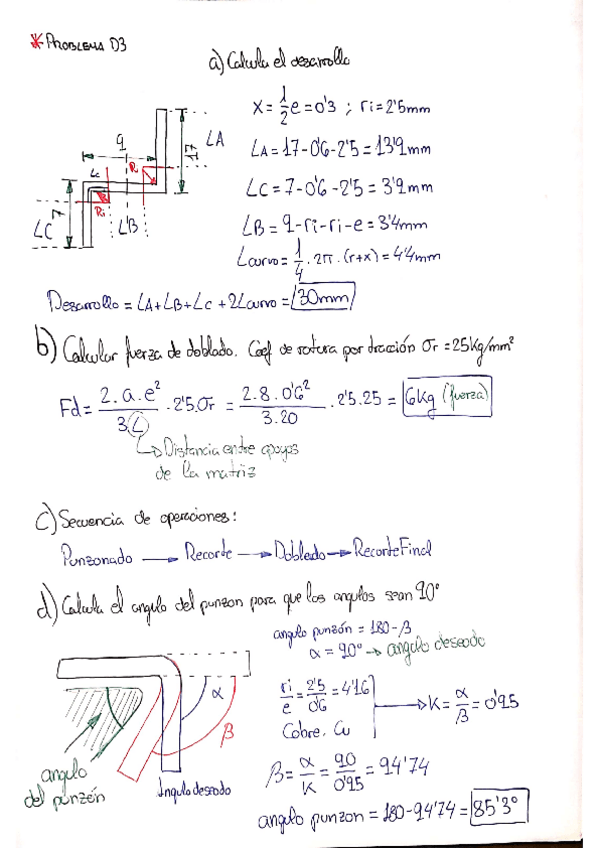 * PROBLEMA D3
a) Calcula el desarrollo
X = 1/2 e = 0'3 ; ri = 2'5mm
LA = 17 - 0'6 - 2'5 = 13'9mm
LC = 7 - 0'6 - 2'5 = 3'9mm
LB = 9 - ri - ri - e = 3'4mm
Lcurvo = 1/4 · 2π · (r+x) = 4'4mm
9
17
LA
Lc
Ri
Ri
7
LC
LB
Desarrollo = LA + LB + Lc + 2Lcurvo = 30mm
b) Calcular fuerza de doblado. Coef de rotura por tracción σr = 25kg/mm²
Fd = 2.a.e² / 3.L · 2'5.σr = 2.8.0'6² / 3.20 · 2'5.25 = 6kg (fuerza)
Distancia entre apoyos
de la matriz
c) Secuencia de operaciones:
Punzonado → Recorte → Doblado → Recorte Final
d) Calcula el angulo del punzon para que los angulos sean 90°
angulo punzón = 180 - β
α = 90° → angulo deseado
ri/e = 2'5/0'6 = 4'16
Cobre. Cu
→ K = α/β = 0'95
β = α/K = 90/0'95 = 94'74
angulo punzon = 180 - 94'74 = 85'3°
α
β
angulo
del punzón
Angulo deseado